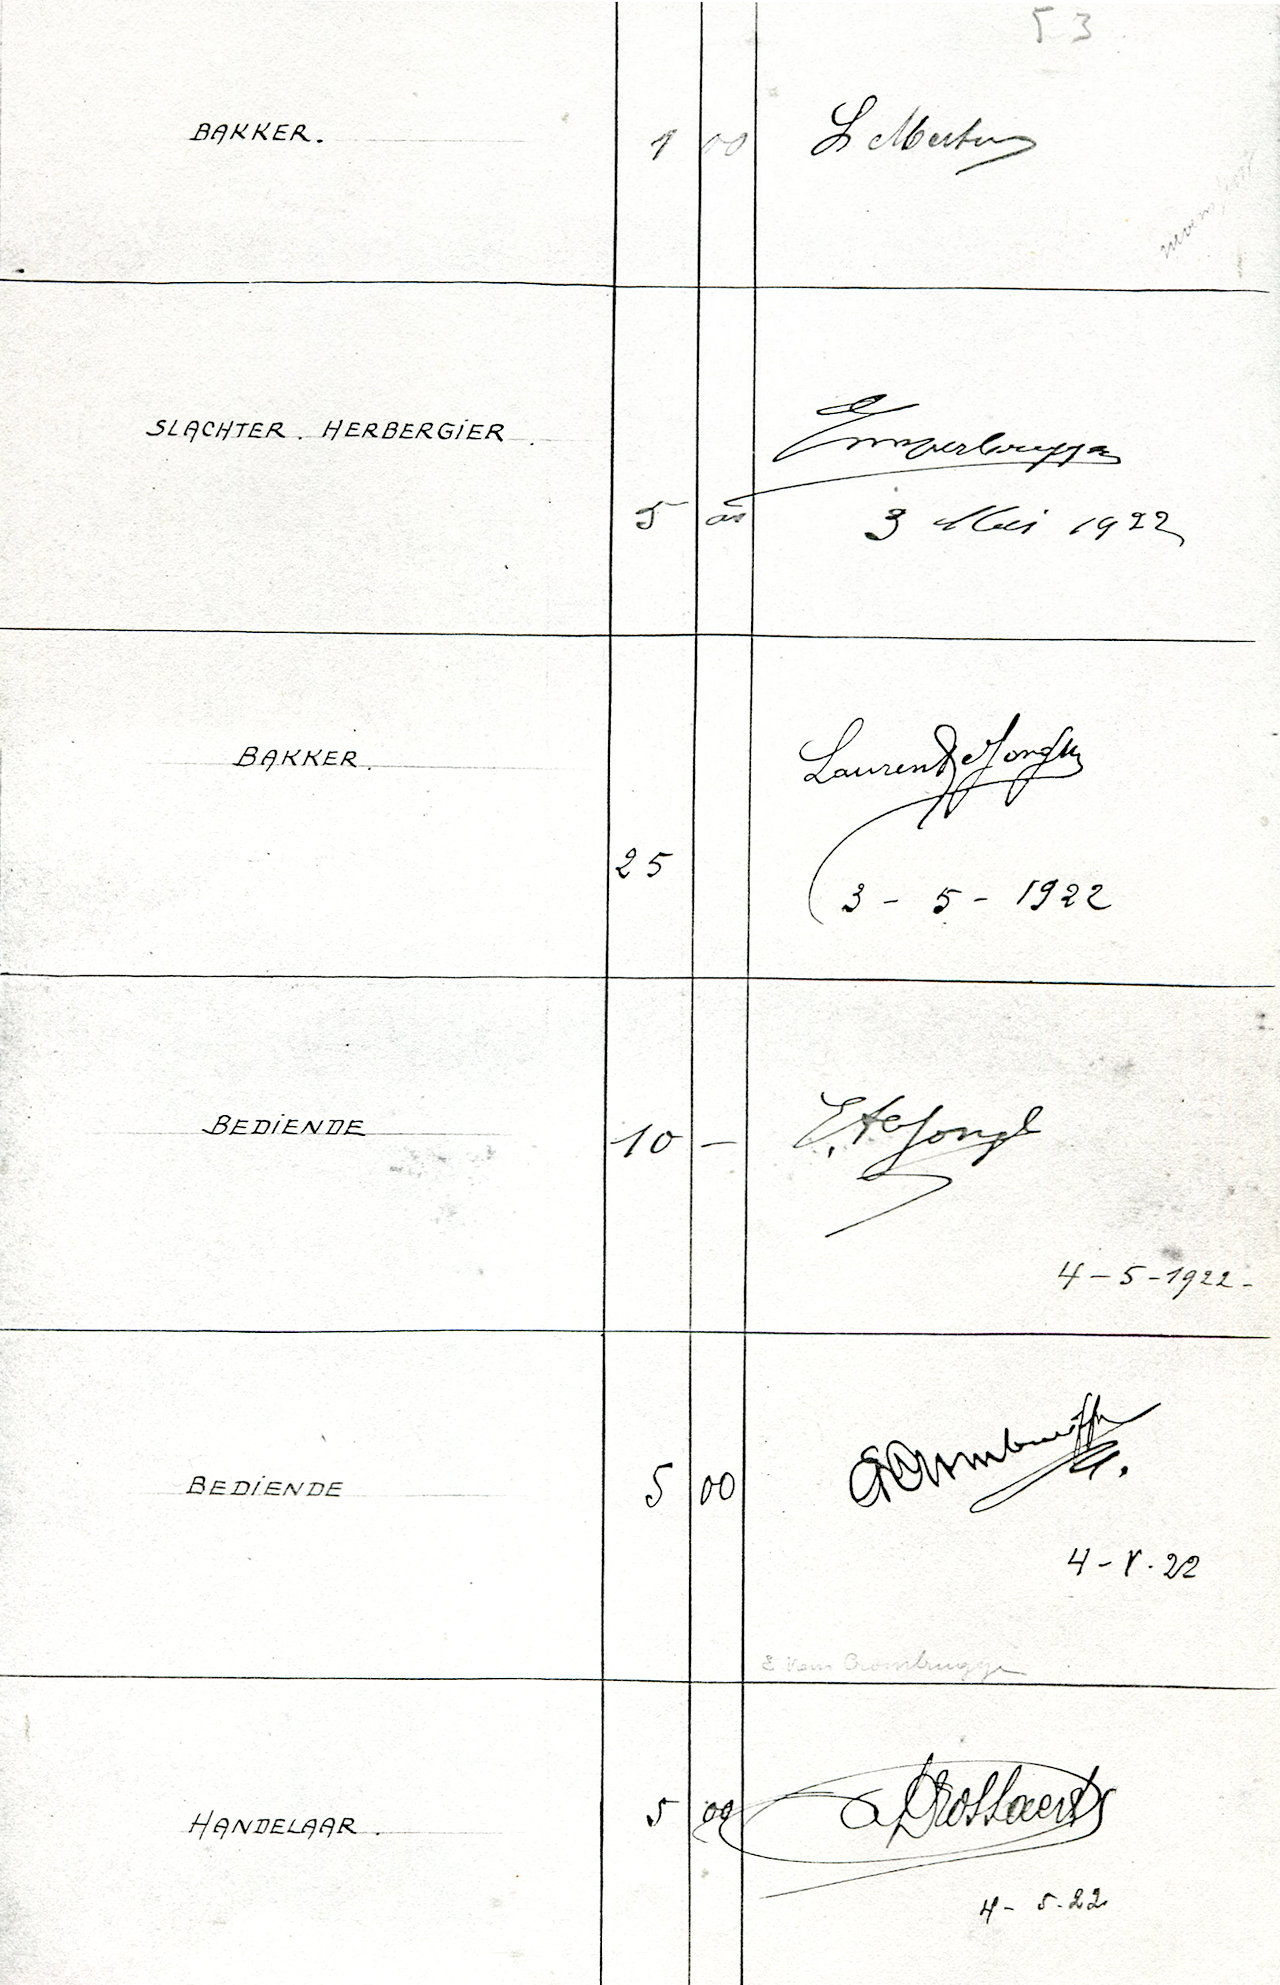 53
BAKKER. 1 00 L Mertens
SLACHTER. HERBERGIER.
5 00 3 Mei 1922
BAKKER. Laurent De Jonghe
25
3 - 5 - 1922
BEDIENDE 10 - E. De Jongh
4 - 5 - 1922 -
BEDIENDE 5 00
4 - V. 22
E Van Crombrugge
HANDELAAR. 5 00 Drossaerts
4 - 5. 22